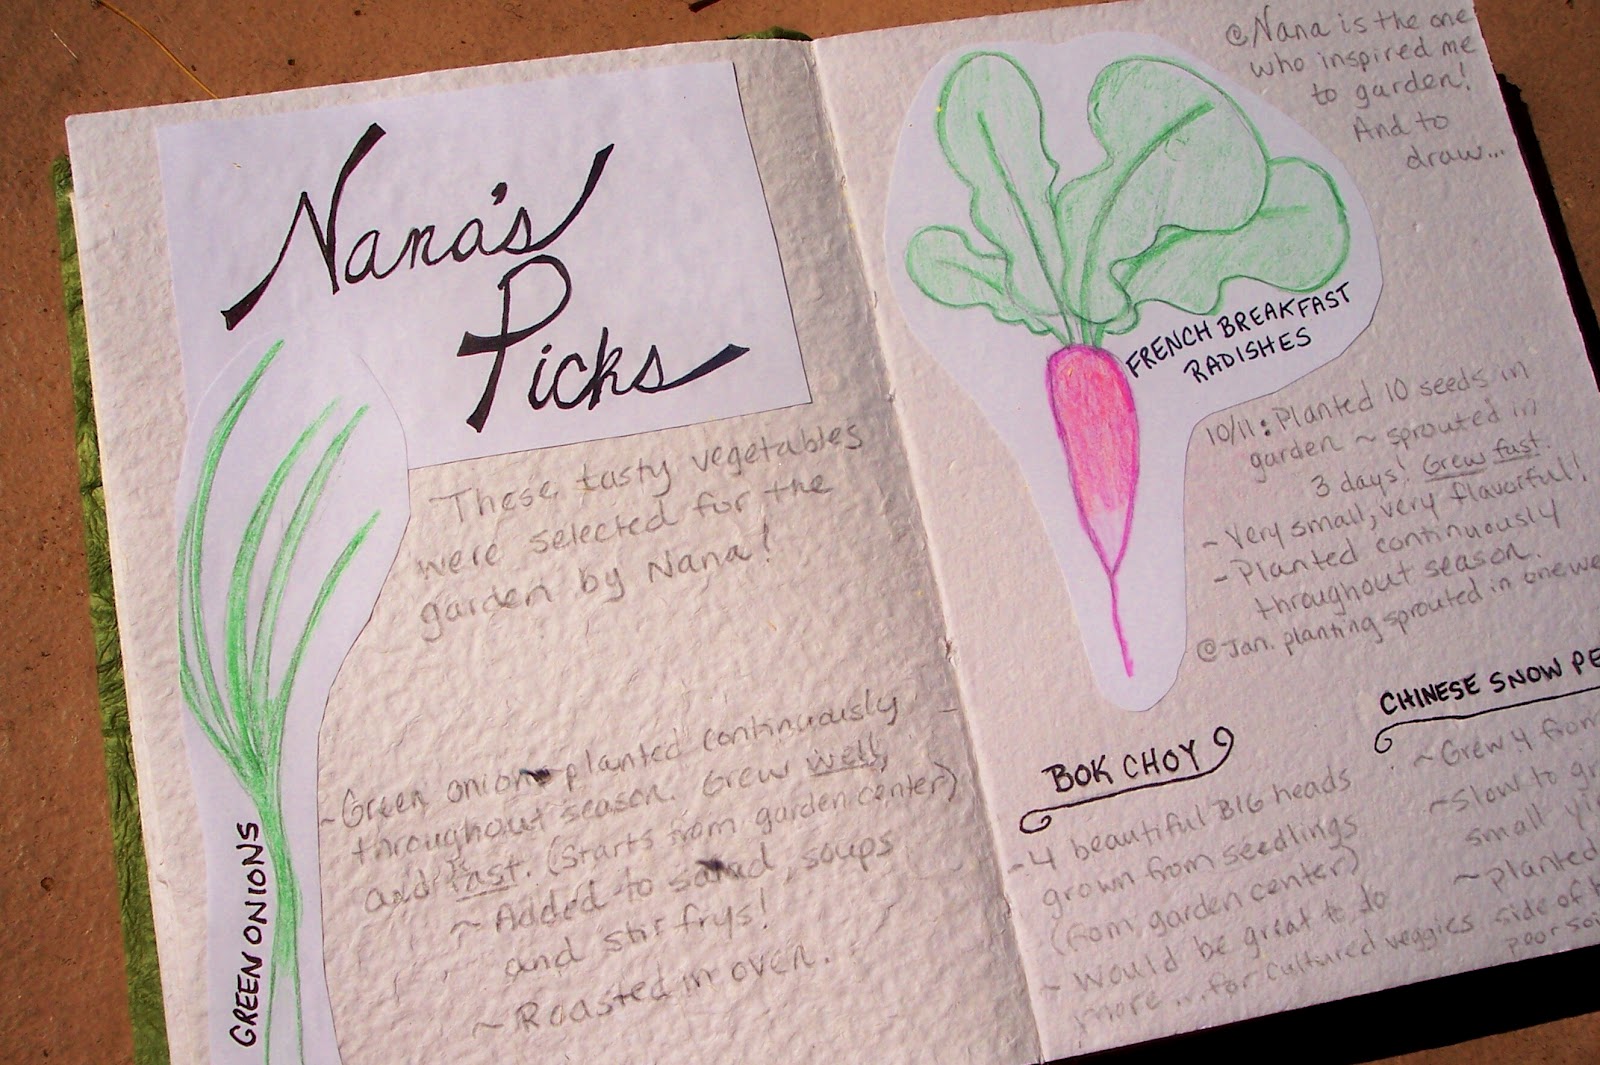 Nana's
Picks
These tasty vegetables
were selected for the
garden by Nana!
GREEN ONIONS
~Green onion planted continuously
throughout season. Grew well,
and fast. (Starts from garden center)
~ Added to salad, soups
and stir frys!
~ Roasted in oven.
@Nana is the one
who inspired me
to garden!
And to
draw...
FRENCH BREAKFAST
RADISHES
10/11: Planted 10 seeds in
garden ~ sprouted in
3 days! Grew fast.
~ Very small, very flavorful!
- Planted continuously
throughout season.
@Jan. planting sprouted in one
BOK CHOY
-4 beautiful BIG heads
grown from seedlings
(from garden center)
~ Would be great to do
more ... for cultured veggies
CHINESE SNOW
~ Grew 4 from
~Slow to
small
~ planted
side of
poor